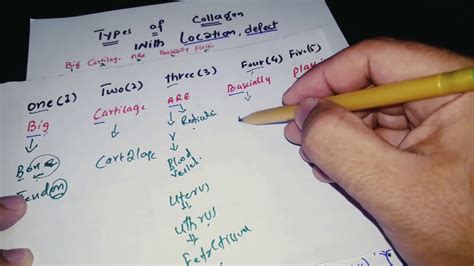 Types of Collagen
With Location, defect
Big Cartilage ARE Basically plasi
one(1) Two(2) three(3) Four(4) Five(5)
Big Cartilage ARE Basically
Bone
Tendon
Cartilage
Blood
Vessel
Uterus